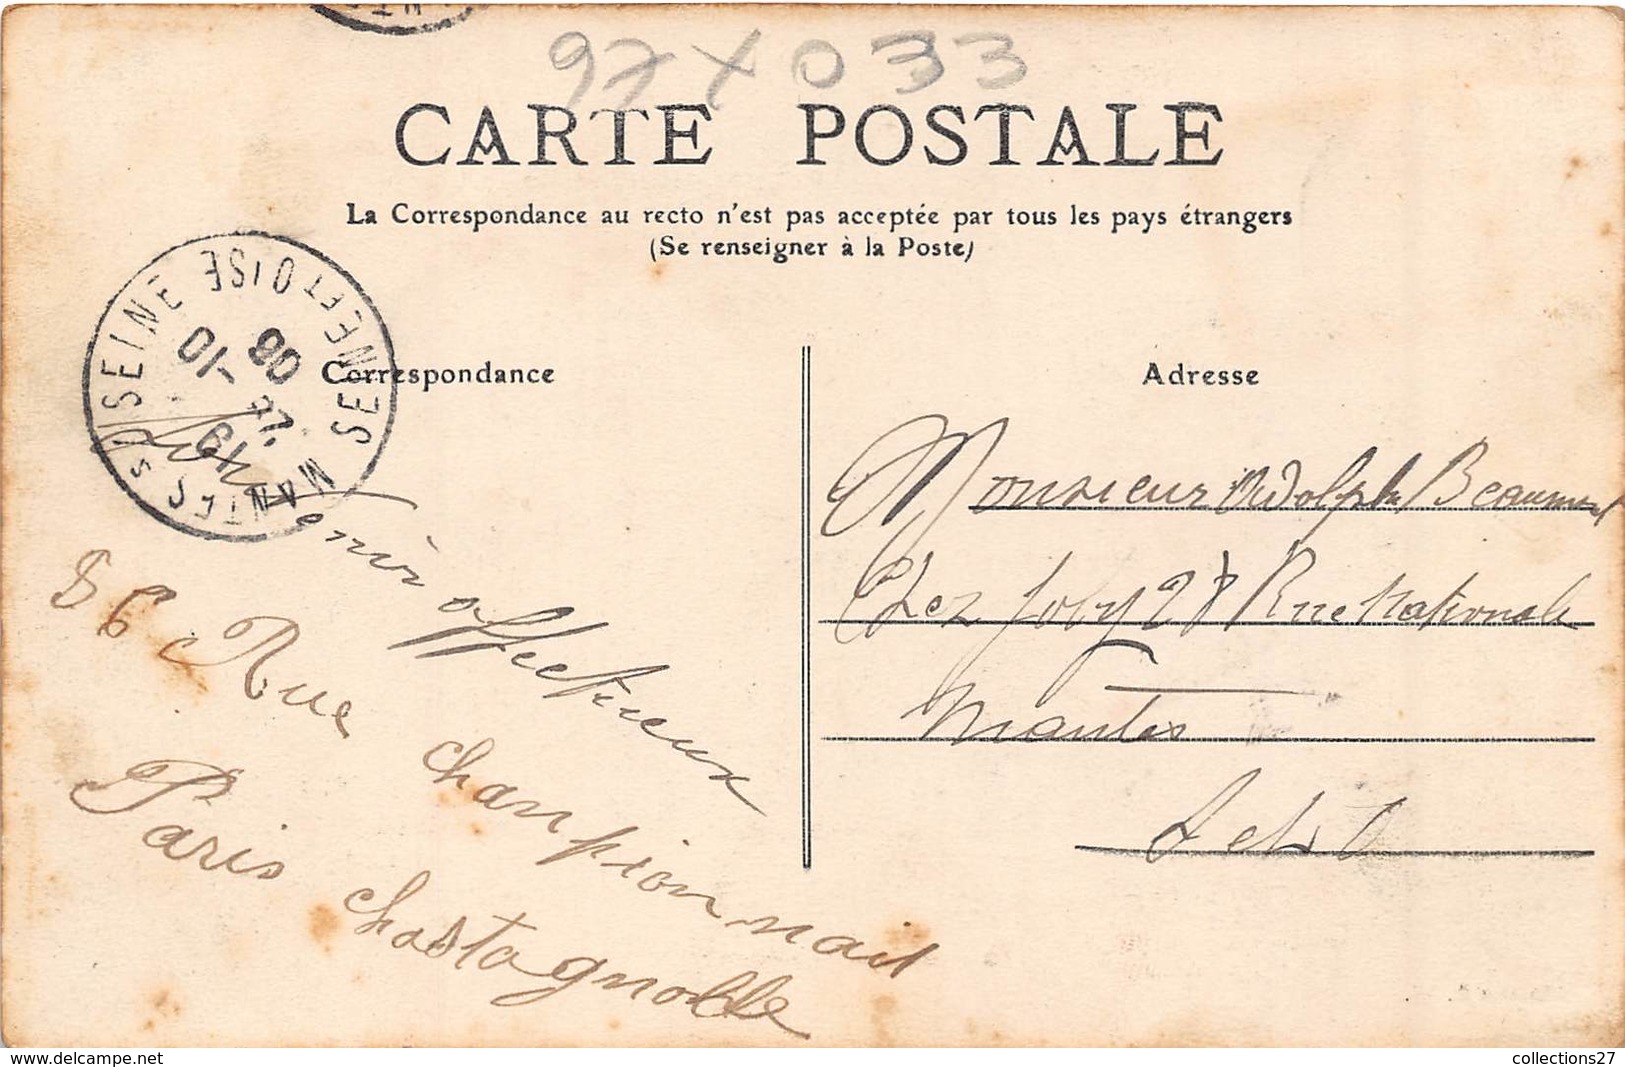 97 X 033
CARTE POSTALE
La Correspondance au recto n'est pas acceptée par tous les pays étrangers
(Se renseigner à la Poste)
MANTES S/ SEINE SEINE ET OISE
10-10
27
08
Correspondance
Souvenir affectueux
86 Rue championnait
Paris chastagnolle
Adresse
Monsieur Adolphe Beaumont
Chez Joly 28 Rue Nationale
Mantes
S et O
www.delcampe.net
collections27